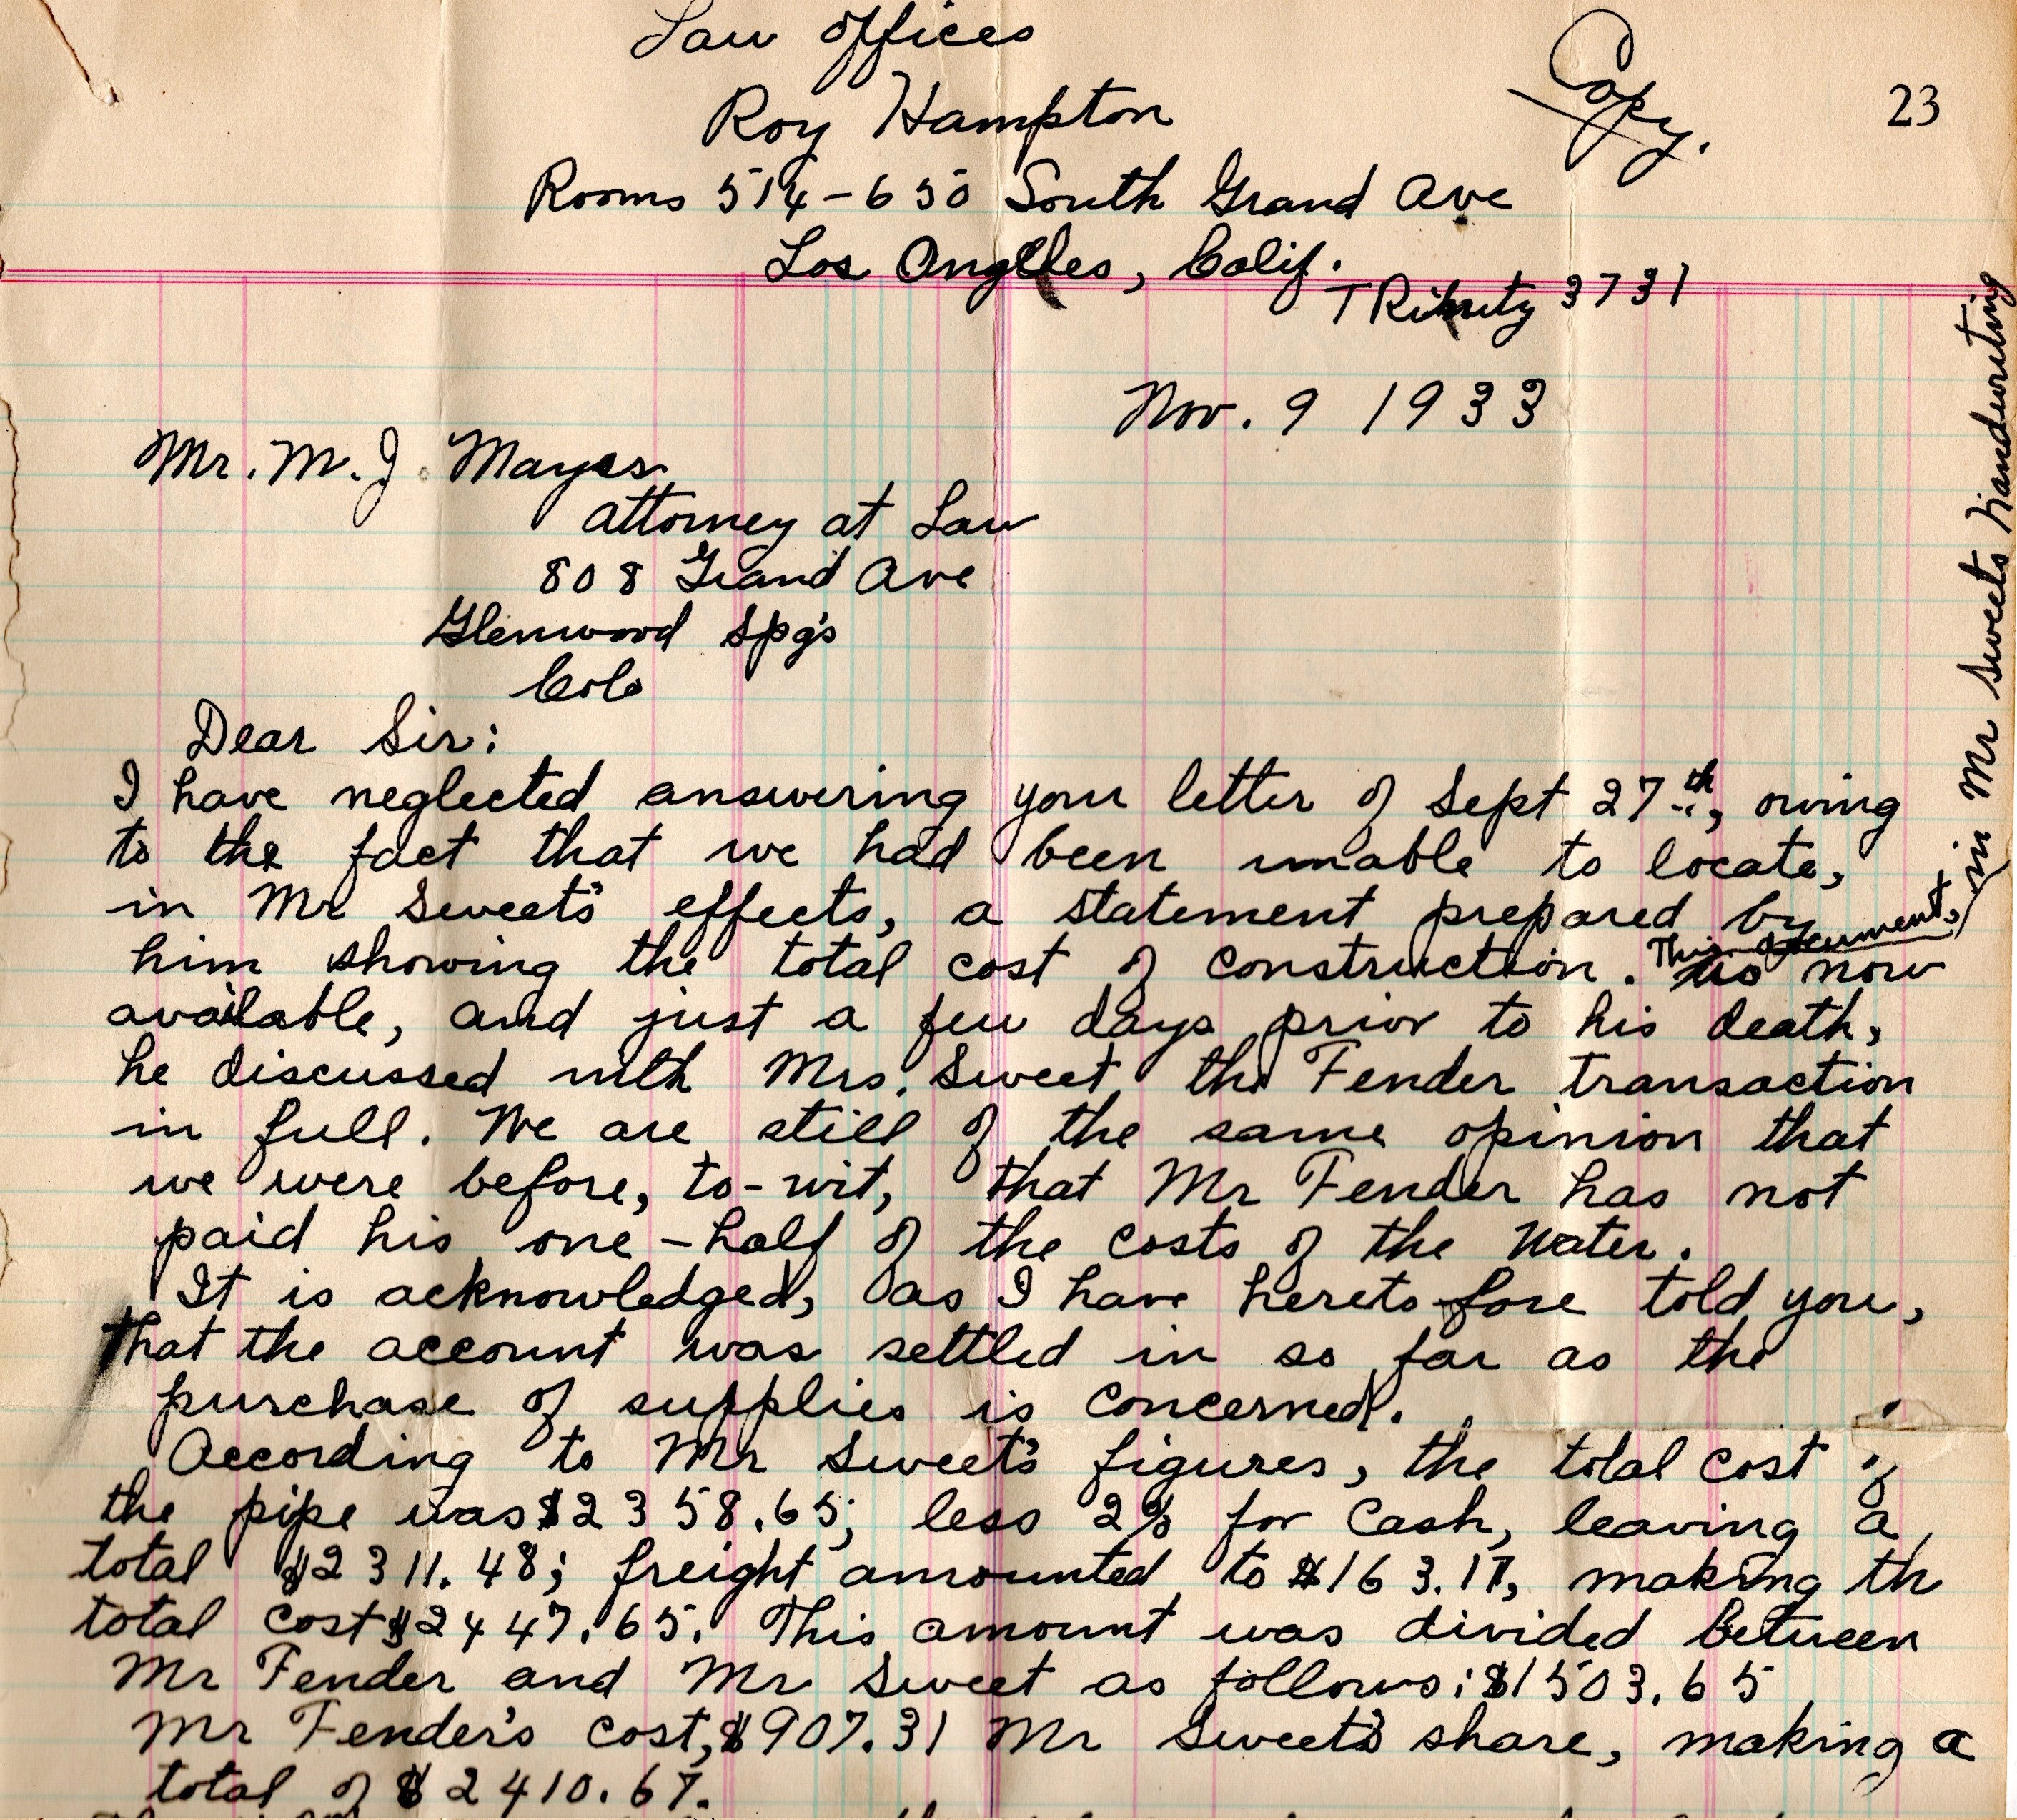 Law Offices
Copy.
23
Roy Hampton
Rooms 514-650 South Grand Ave
Los Angeles, Calif.
TRinity 3731
Nov. 9 1933
Mr. M. J. Mayes
Attorney at Law
808 Grand Ave
Glenwood Spg's
Colo
Dear Sir:
I have neglected answering your letter of Sept 27th, owing
to the fact that we had been unable to locate,
in Mr Sweet's effects, a statement prepared by
him showing the total cost of construction. This document, in Mr Sweets handwriting
is now
available, and just a few days prior to his death,
he discussed with Mrs. Sweet the Fender transaction
in full. We are still of the same opinion that
we were before, to-wit, that Mr Fender has not
paid his one-half of the costs of the water.
It is acknowledged, as I have heretofore told you,
that the account was settled in so far as the
purchase of supplies is concerned.
According to Mr Sweet's figures, the total cost of
the pipe was $2358.65; less 2% for cash, leaving a
total $2311.48; freight amounted to $163.17, making th
total cost $2447.65. This amount was divided between
Mr Fender and Mr Sweet as follows: $1503.65
Mr Fender's cost, $907.31 Mr Sweet's share, making a
total of $2410.67.